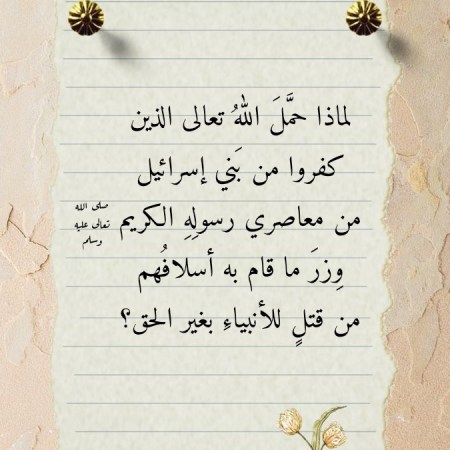 لماذا حمَّلَ اللهُ تعالى الذين
كفروا من بَني إسرائيل
من معاصري رسولِهِ الكريم صلى الله تعالى عليه وسلم
وِزرَ ما قام به أسلافُهم
من قتلٍ للأنبياءِ بغير الحق؟